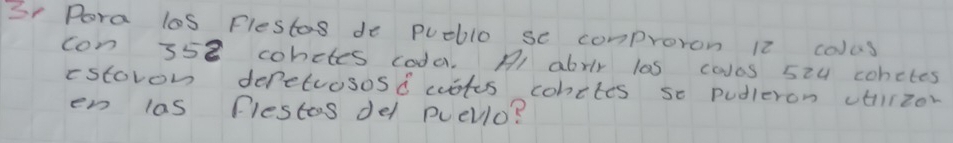 3. Para las Fiestas de pueblo se compraron 12 cajas
con 352 cohetes cada. Al abrir las cajas 524 cohetes
estavon defetuosos ¿cuátes cohetes se pudieron utilizar
en las fiestas del puevlo?